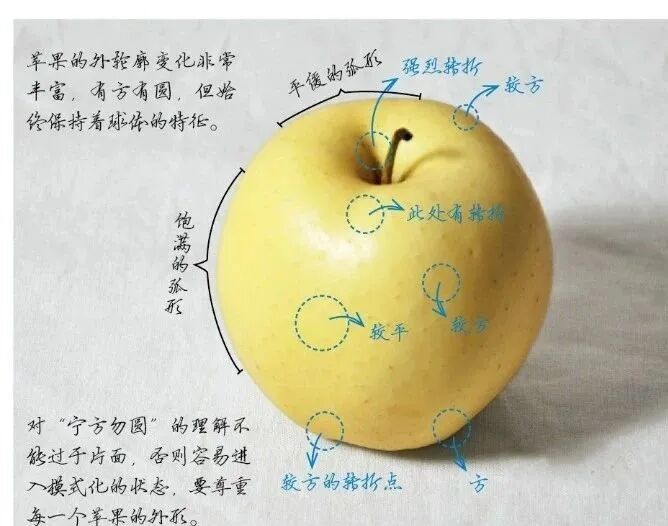 苹果的外轮廓变化非常
丰富，有方有圆，但始
终保持着球体的特征。
平缓的弧形
强烈转折
较方
饱满的弧形
此处有转折
较平
较方
对“宁方勿圆”的理解不
能过于片面，否则容易进
入模式化的状态，要尊重
每一个苹果的外形。
较方的转折点
方